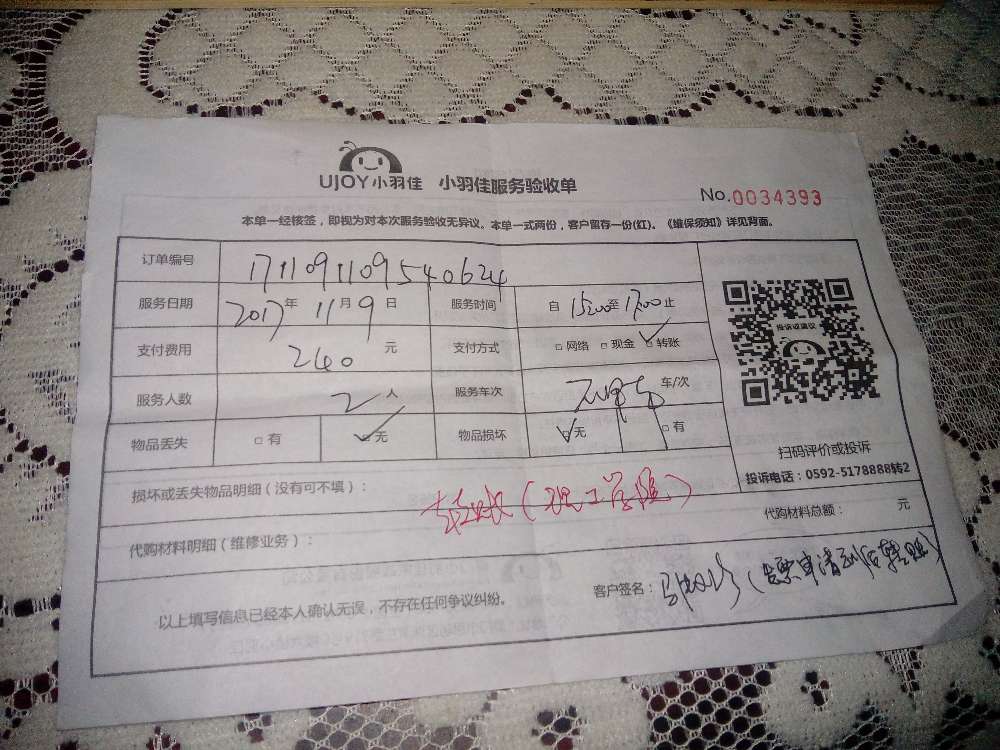 UJOY小羽佳 小羽佳服务验收单
No.0034393
本单一经核签，即视为对本次服务验收无异议。本单一式两份，客户留存一份(红)。《维保须知》详见背面。
订单编号 1711091109540624
服务日期 2017年11月9日 服务时间 自15:00至17:00止
支付费用 240元 支付方式 □网络 □现金 □转账
服务人数 2人 服务车次 车/次
物品丢失 □有 □无 物品损坏 □无 □有
投诉或建议
扫码评价或投诉
投诉电话：0592-5178888转2
损坏或丢失物品明细（没有可不填）：
转账（理工学院）
代购材料明细（维修业务）： 代购材料总额： 元
以上填写信息已经本人确认无误，不存在任何争议纠纷。 客户签名： （发票申请到后转账）